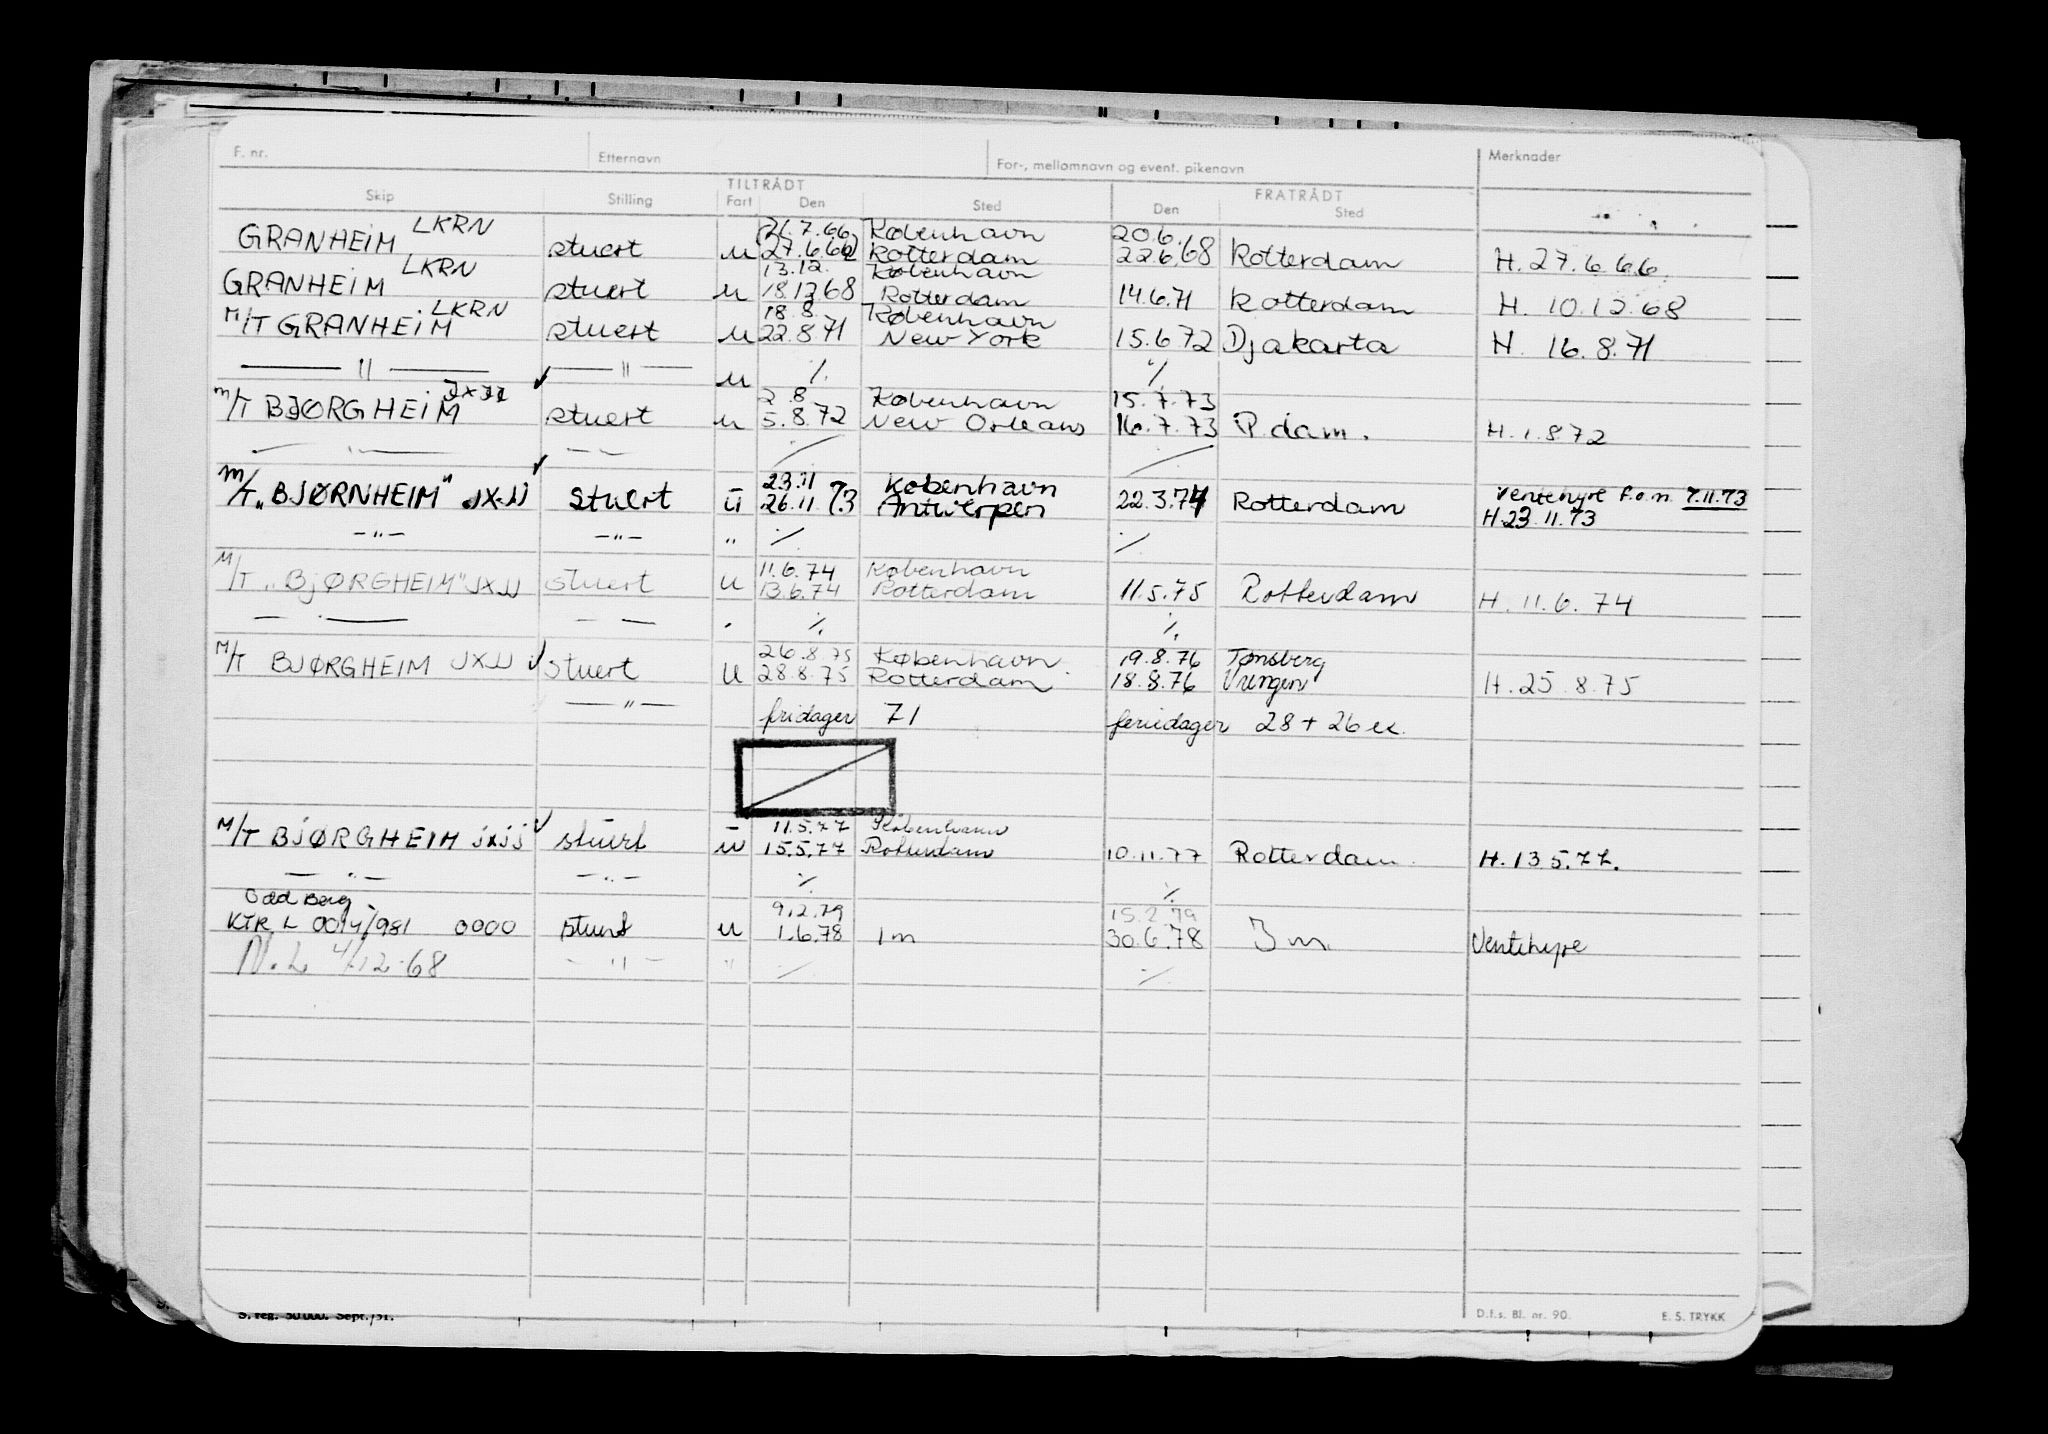 F. nr. Etternavn For-, mellomnavn og event. pikenavn Merknader
TILTRÅDT FRATRÅDT
Skip Stilling Fart Den Sted Den Sted
GRANHEIM LKRN stuert u København 20.6.
27.6.66 Rotterdam 22.6.68 Rotterdam H. 27.6.66.
GRANHEIM LKRN stuert u 13.12. København
18.12 68 Rotterdam 14.6.71 Rotterdam H. 10.12.68
M/T GRANHEIM LKRN stuert u 18.8. København
22.8.71 New York 15.6 72 Djakarta H. 16.8.71
— " — — " — u ·/. ·/.
M/T BJØRGHEIM JXJJ stuert u 2 8 København 15.7.73
5.8.72 New Orleans 16.7.73 P.dam. H.1.872
M/T „BJØRNHEIM" JX.JJ stuert u 23.11 København ventehyre f.o.m. 7.11.73
26.11 73 Antwerpen 22.3.74 Rotterdam H.23.11.73
—"— —"— " ·/. ·/.
M/T „BJØRGHEIM" JXJJ stuert u 11.6.74 København
13.6.74 Rotterdam 11.5.75 Rotterdam H. 11.6.74
·/. ·/.
M/T BJØRGHEIM JXJJ stuert u 26.8.75 København 19.8.76 Tønsberg
28.8.75 Rotterdam 18.8.76 Vrengen H.25.8.75
—"— fridager 71 feriedager 28 + 26
M/T BJØRGHEIM JXJJ stuert u 11.5.77 København
15.5.77 Rotterdam 10.11.77 Rotterdam H.13 5.77.
— " — — " — ·/. ·/.
Odd Berg 9.2.79 15.2.79
KTR L 0014/981 0000 stuert u 1.6.78 1m 30.6.78 3 m. Ventehyre
N.L 4/12-68 — " — " ·/. ·/.
S. reg. 50 000. Sept./51. D.f.s. Bl. nr. 90. E. S. TRYKK